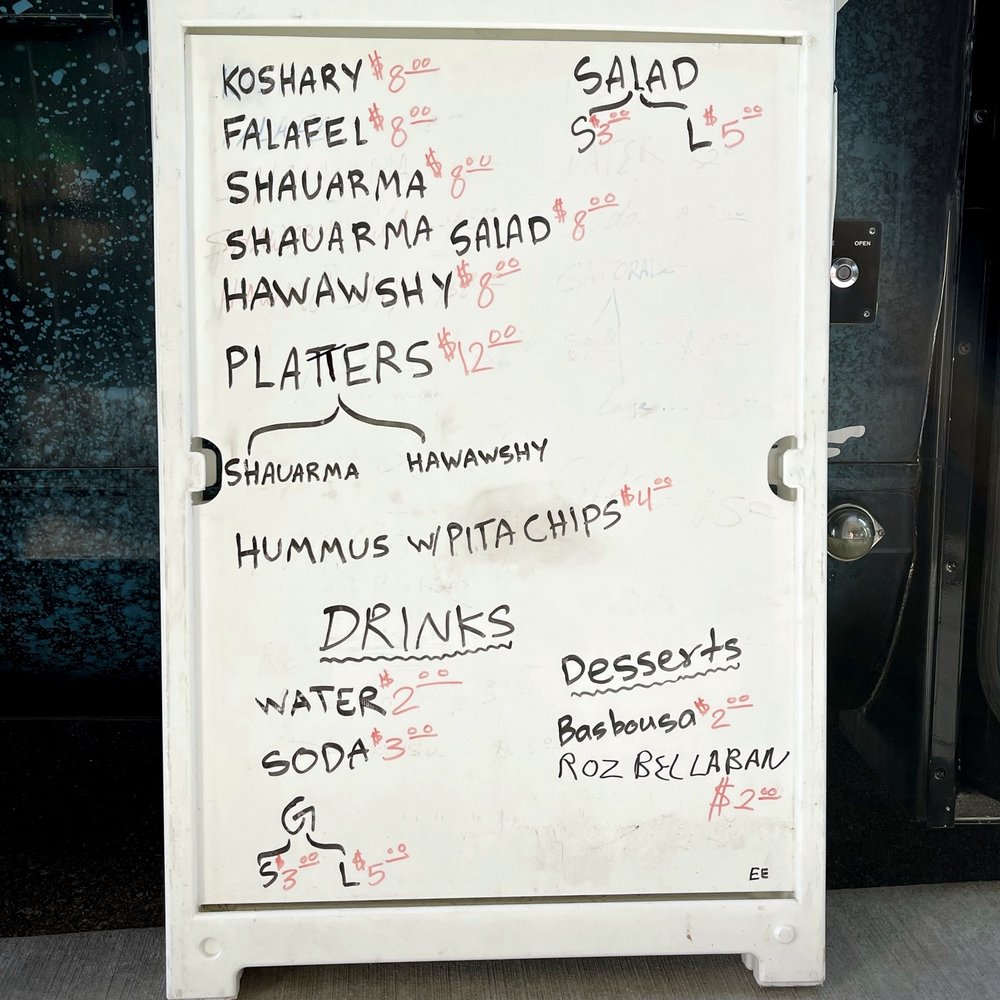 KOSHARY $8.00
FALAFEL $8.00
SHAUARMA $8.00
SHAUARMA SALAD $8.00
HAWAWSHY $8.00
PLATTERS $12.00
SHAUARMA HAWAWSHY
HUMMUS W/PITA CHIPS $4.00
SALAD
S $3.00 L $5.00
DRINKS
WATER $2.00
SODA $3.00
G
S $3.00 L $5.00
Desserts
Basbousa $2.00
ROZ BELLABAN
$2.00
EE
OPEN
GATORADE